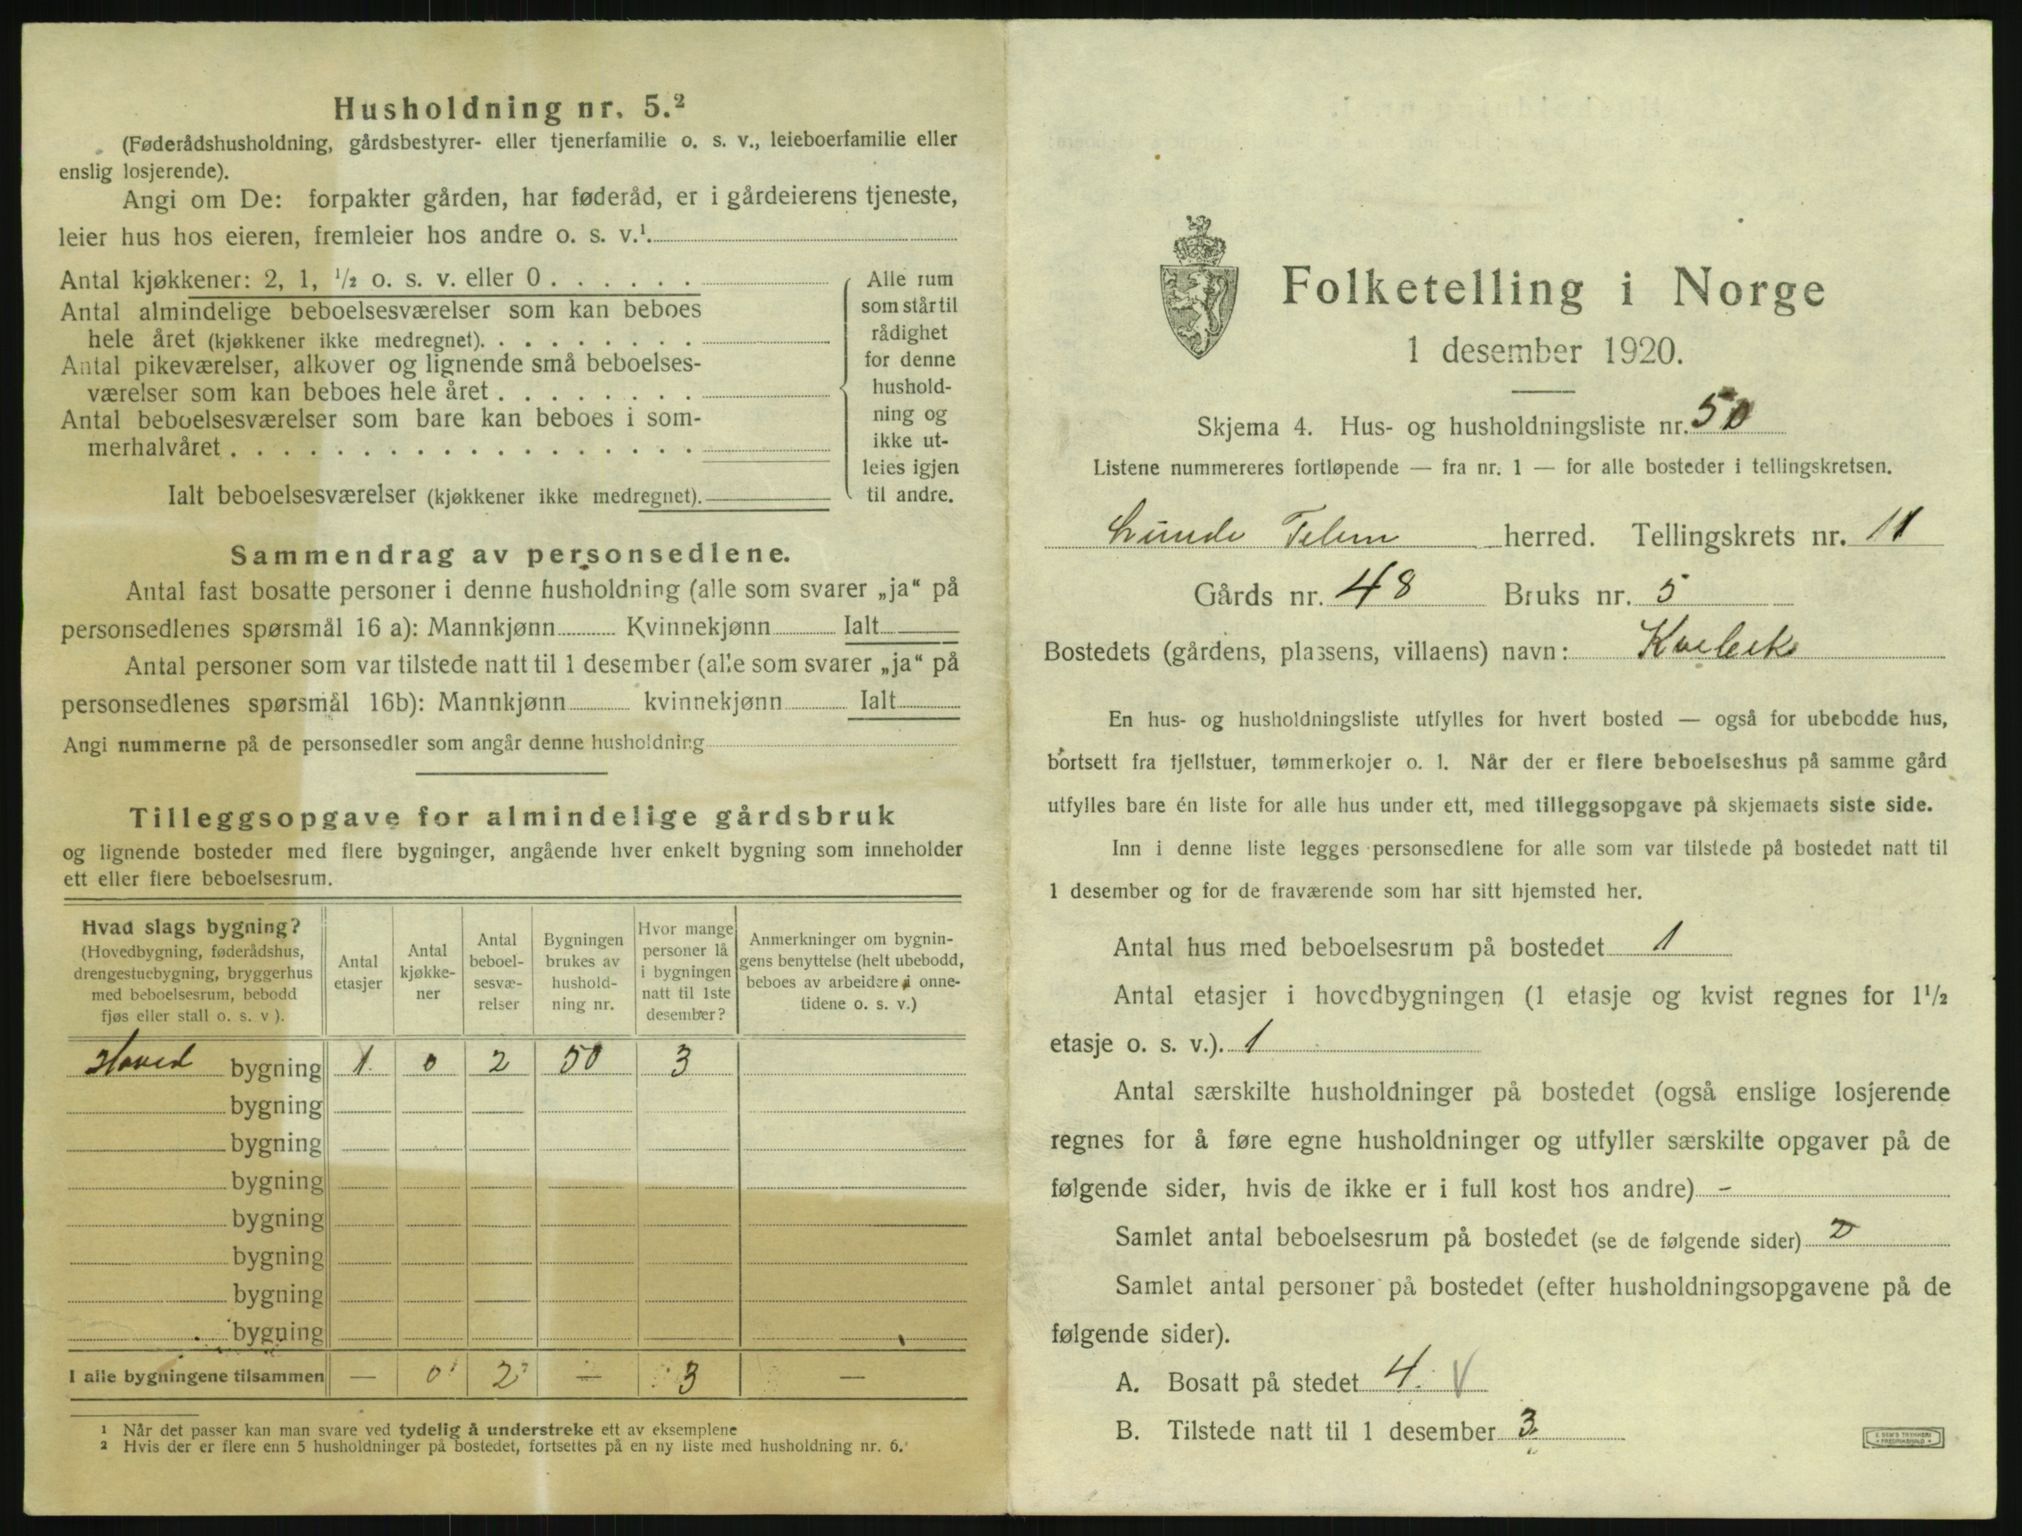 Husholdning nr. 5.²
(Føderådshusholdning, gårdsbestyrer- eller tjenerfamilie o. s. v., leieboerfamilie eller
enslig losjerende).
Angi om De: forpakter gården, har føderåd, er i gårdeierens tjeneste,
leier hus hos eieren, fremleier hos andre o. s. v.¹
Antal kjøkkener: 2, 1, ½ o. s. v. eller 0
Antal almindelige beboelsesværelser som kan beboes
hele året (kjøkkener ikke medregnet).
Antal pikeværelser, alkover og lignende små beboelses-
værelser som kan beboes hele året
Antal beboelsesværelser som bare kan beboes i som-
merhalvåret
Ialt beboelsesværelser (kjøkkener ikke medregnet).
Alle rum
som står til
rådighet
for denne
hushold-
ning og
ikke ut-
leies igjen
til andre.
Sammendrag av personsedlene.
Antal fast bosatte personer i denne husholdning (alle som svarer „ja“ på
personsedlenes spørsmål 16 a): Mannkjønn Kvinnekjønn Ialt
Antal personer som var tilstede natt til 1 desember (alle som svarer „ja“ på
personsedlenes spørsmål 16b): Mannkjønn kvinnekjønn Ialt
Angi nummerne på de personsedler som angår denne husholdning
Tilleggsopgave for almindelige gårdsbruk
og lignende bosteder med flere bygninger, angående hver enkelt bygning som inneholder
ett eller flere beboelsesrum.
Hvad slags bygning?
(Hovedbygning, føderådshus,
drengestuebygning, bryggerhus
med beboelsesrum, bebodd
fjøs eller stall o. s. v ).
Antal
etasjer
Antal
kjøkke-
ner
Antal
beboel-
sesvæ-
relser
Bygningen
brukes av
hushold-
ning nr.
Hvor mange
personer lå
i bygningen
natt til 1ste
desember?
Anmerkninger om bygnin-
gens benyttelse (helt ubebodd,
beboes av arbeidere i onne-
tidene o. s. v.)
Hoved bygning 1 0 2 50 3
bygning
bygning
bygning
bygning
bygning
bygning
bygning
I alle bygningene tilsammen — 0 2 — 3 —
¹ Når det passer kan man svare ved tydelig å understreke ett av eksemplene
² Hvis der er flere enn 5 husholdninger på bostedet, fortsettes på en ny liste med husholdning nr. 6.
Folketelling i Norge
1 desember 1920.
Skjema 4. Hus- og husholdningsliste nr. 50
Listene nummereres fortløpende — fra nr. 1 — for alle bosteder i tellingskretsen.
Lunde Telem herred. Tellingskrets nr. 11
Gårds nr. 48 Bruks nr. 5
Bostedets (gårdens, plassens, villaens) navn:
En hus- og husholdningsliste utfylles for hvert bosted — også for ubebodde hus,
bortsett fra fjellstuer, tømmerkojer o. l. Når der er flere beboelseshus på samme gård
utfylles bare én liste for alle hus under ett, med tilleggsopgave på skjemaets siste side.
Inn i denne liste legges personsedlene for alle som var tilstede på bostedet natt til
1 desember og for de fraværende som har sitt hjemsted her.
Antal hus med beboelsesrum på bostedet 1
Antal etasjer i hovedbygningen (1 etasje og kvist regnes for 1½
etasje o. s. v.). 1
Antal særskilte husholdninger på bostedet (også enslige losjerende
regnes for å føre egne husholdninger og utfyller særskilte opgaver på de
følgende sider, hvis de ikke er i full kost hos andre) -
Samlet antal beboelsesrum på bostedet (se de følgende sider) 2
Samlet antal personer på bostedet (efter husholdningsopgavene på de
følgende sider).
A. Bosatt på stedet 4. V
B. Tilstede natt til 1 desember 3